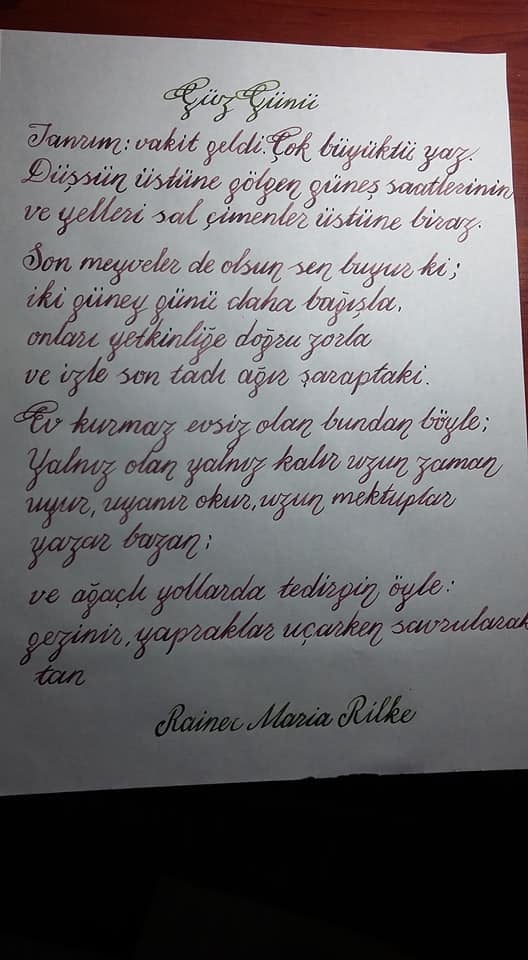 Güz Günü
Tanrım: vakit geldi. Çok büyüktü yaz.
Düşsün üstüne gölgen güneş saatlerinin
ve yelleri sal çimenler üstüne biraz.
Son meyveler de olsun sen buyur ki;
iki güney günü daha bağışla,
onları yetkinliğe doğru zorla
ve izle son tadı ağır şaraptaki.
Ev kurmaz evsiz olan bundan böyle;
Yalnız olan yalnız kalır uzun zaman
uyur, uyanır okur, uzun mektuplar
yazar bazan;
ve ağaçlı yollarda tedirgin öyle:
gezinir, yapraklar uçarken savrularak
tan
Rainer Maria Rilke